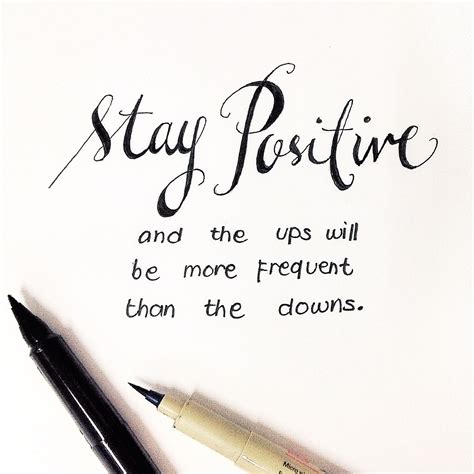 Stay Positive
and the ups will
be more frequent
than the downs.